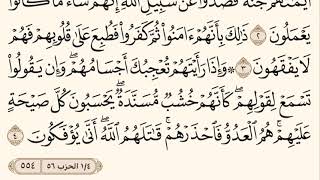 أَيْمَٰنَهُمْ جُنَّةً فَصَدُّوا۟ عَن سَبِيلِ ٱللَّهِ إِنَّهُمْ سَآءَ مَا كَانُوا۟
يَعْمَلُونَ ٢ ذَٰلِكَ بِأَنَّهُمْ ءَامَنُوا۟ ثُمَّ كَفَرُوا۟ فَطُبِعَ عَلَىٰ قُلُوبِهِمْ فَهُمْ
لَا يَفْقَهُونَ ٣ ۞ وَإِذَا رَأَيْتَهُمْ تُعْجِبُكَ أَجْسَامُهُمْ وَإِن يَقُولُوا۟
تَسْمَعْ لِقَوْلِهِمْ كَأَنَّهُمْ خُشُبٌ مُّسَنَّدَةٌ يَحْسَبُونَ كُلَّ صَيْحَةٍ
عَلَيْهِمْ هُمُ ٱلْعَدُوُّ فَٱحْذَرْهُمْ قَٰتَلَهُمُ ٱللَّهُ أَنَّىٰ يُؤْفَكُونَ ٤
١/٤ الحزب ٥٦ ٥٥٤